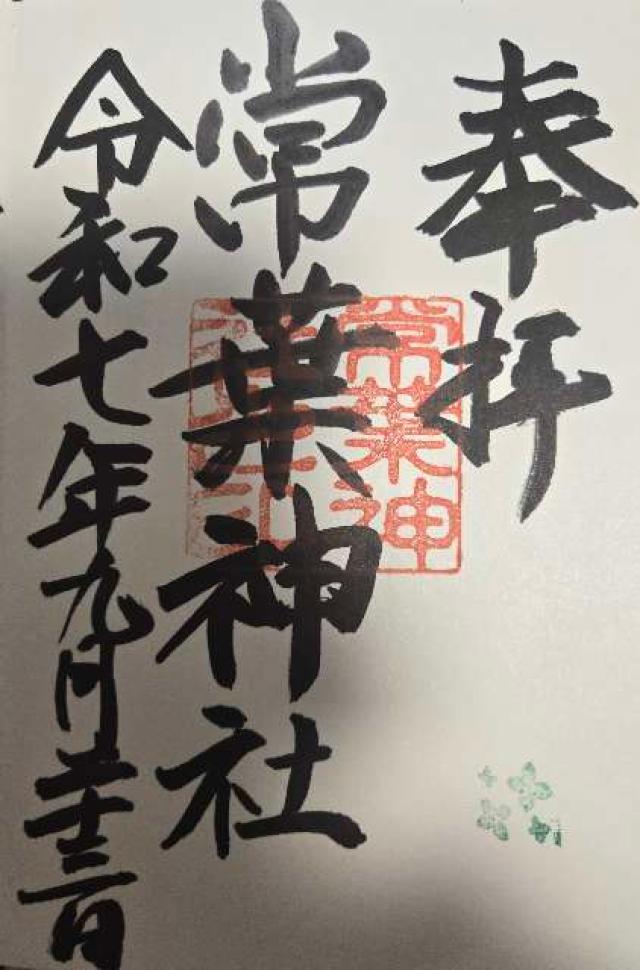 奉拝
常葉神社
常葉神
令和七年九月二十三日